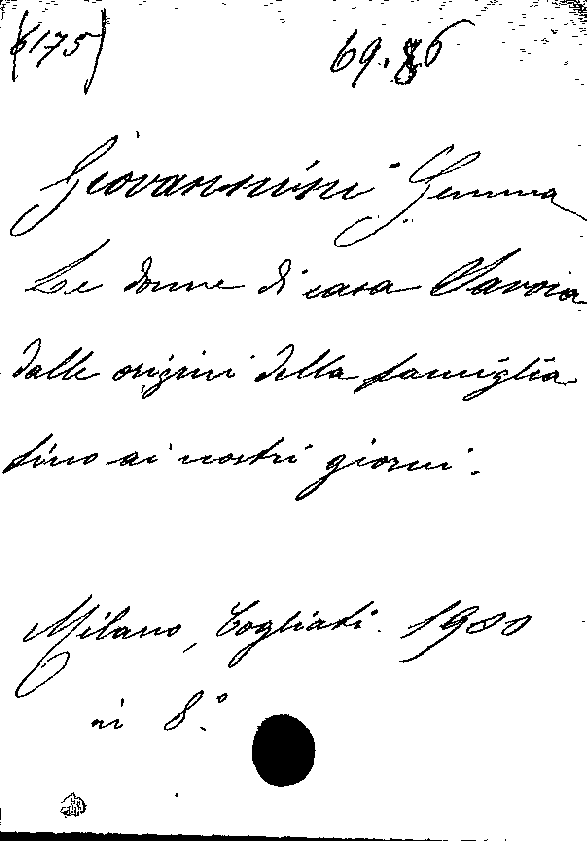 (6175) 69.86
Giovannini Gemma
Le donne di casa Savoia
dalle origini della famiglia
fino ai nostri giorni.
Milano, Cogliati. 1900
in 8.°